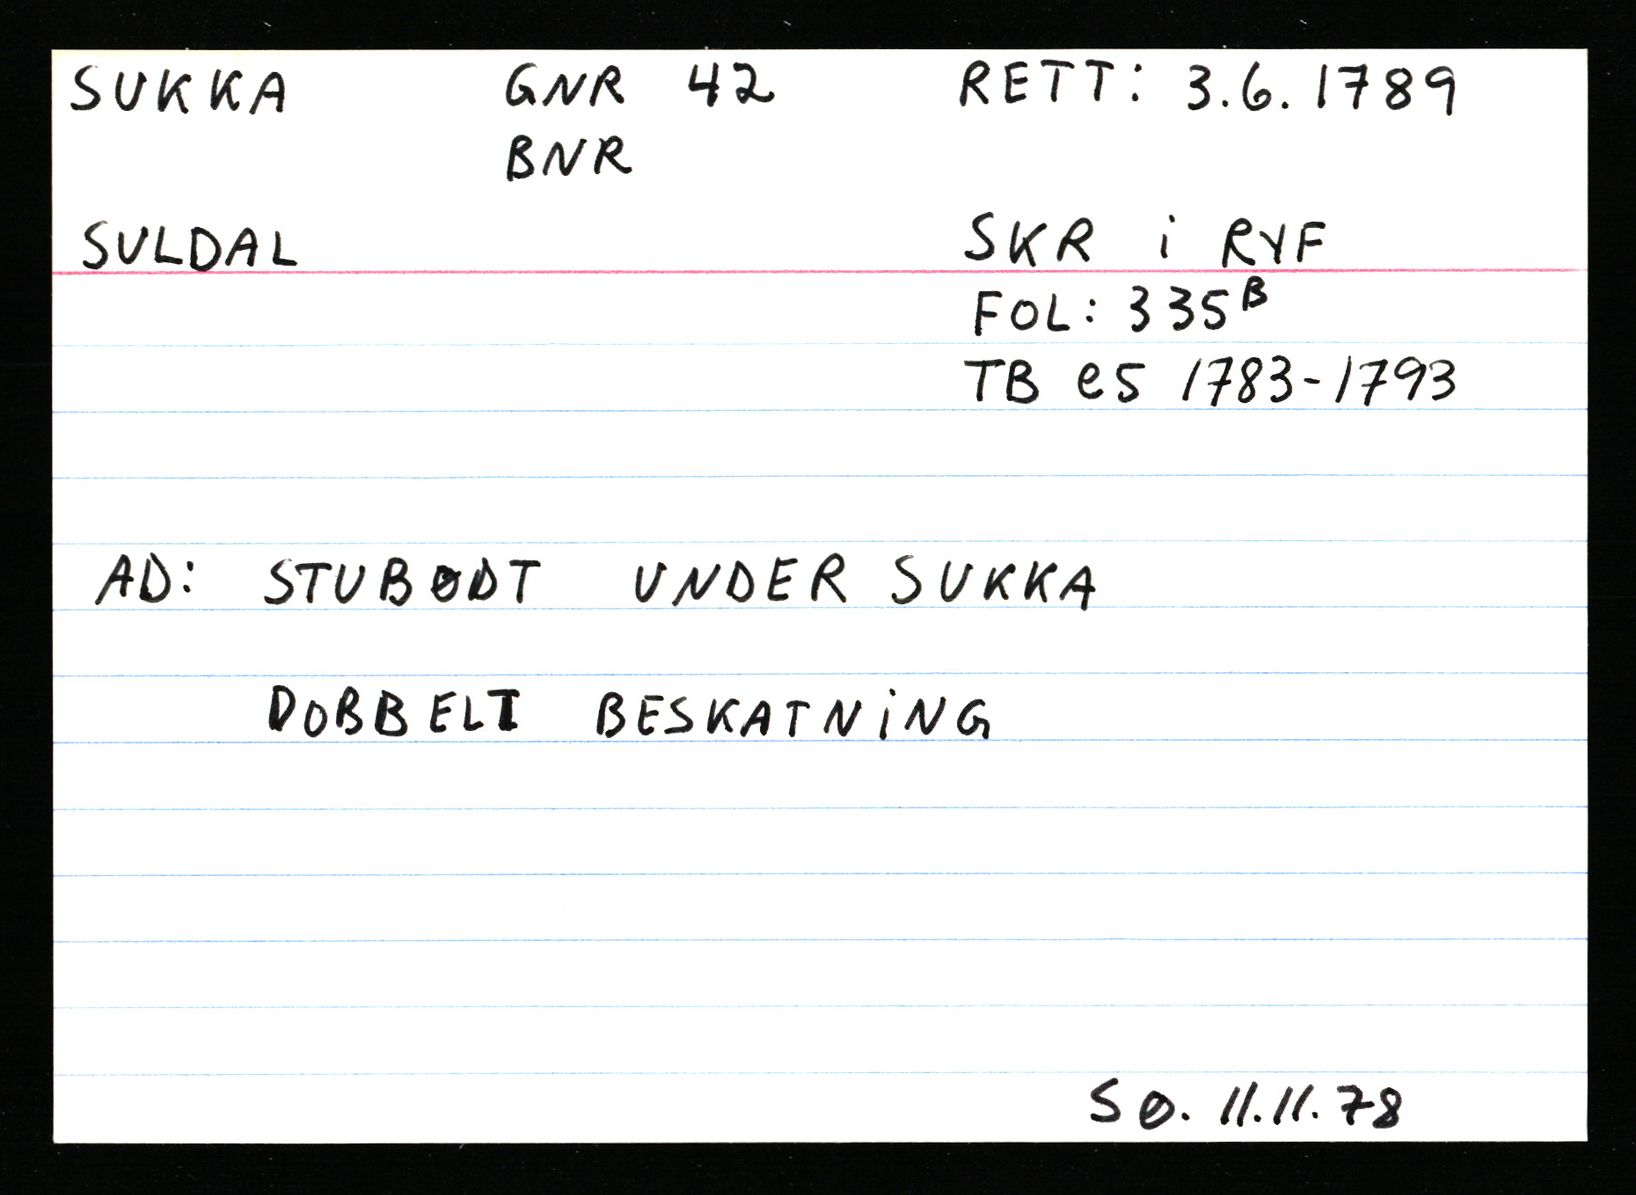 SUKKA GNR 42 RETT: 3.6.1789
BNR
SULDAL SKR i RYF
FOL: 335B
TB e5 1783-1793
AD: STUBØDT UNDER SUKKA
DOBBELT BESKATNiNG
SØ. 11.11.78